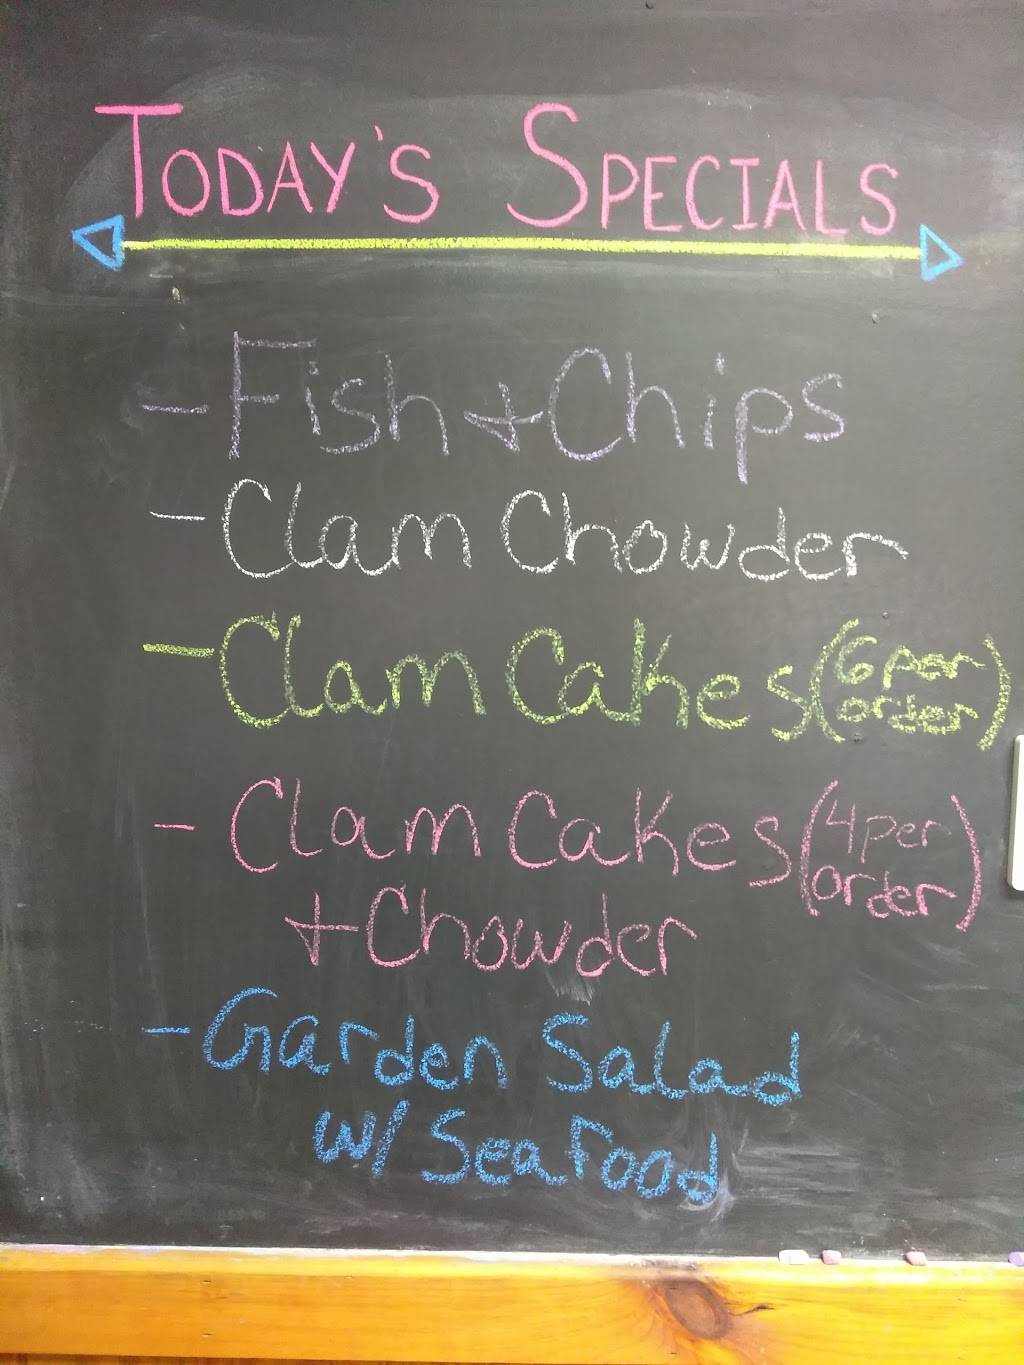 Today's Specials
- Fish + Chips
- Clam Chowder
- Clam Cakes (6 per order)
- Clam Cakes (4 per order)
+ Chowder
- Garden Salad
w/ Seafood